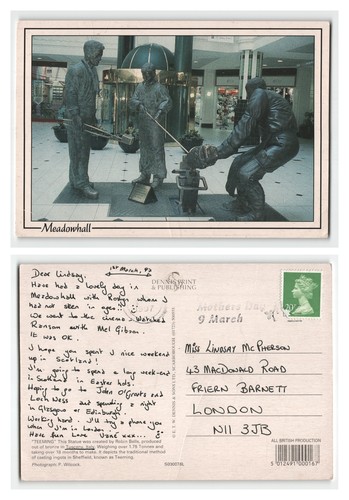 Meadowhall
1st March, 97
Dear Lindsay,
Have had a lovely day in
Meadowhall with Robyn whom I
had not seen in ages.
We went to the cinema & watched
Ransom with Mel Gibson.
It was OK.
I hope you spent a nice weekend
up in Scotland!
I'm going to spend a long week-end
in Scotland in Easter hols.
Hoping to go to John O'Groats and
Loch Ness and spending a night
in Glasgow or Edinburgh.
Working hard. I'll try & phone you
when I'm in London!
Have fun Love
"TEEMING" This Statue was created by Robin Bell, produced
out of bronze in Tuscany, Italy. Weighing over 1.75 Tonnes and
taking over 18 months to make. It depicts the traditional method
of casting ingots in Sheffield, known as Teeming.
Photograph: F. Wilcock
S00001&L
DENNIS PRINT
& PUBLISHING
Mothers Day
9 March
20
Miss LINDSAY MCPHERSON
43 MACDONALD ROAD
FRIERN BARNETT
LONDON
N11 3JB
ALL BRITISH PRODUCTION
5 012491 000167